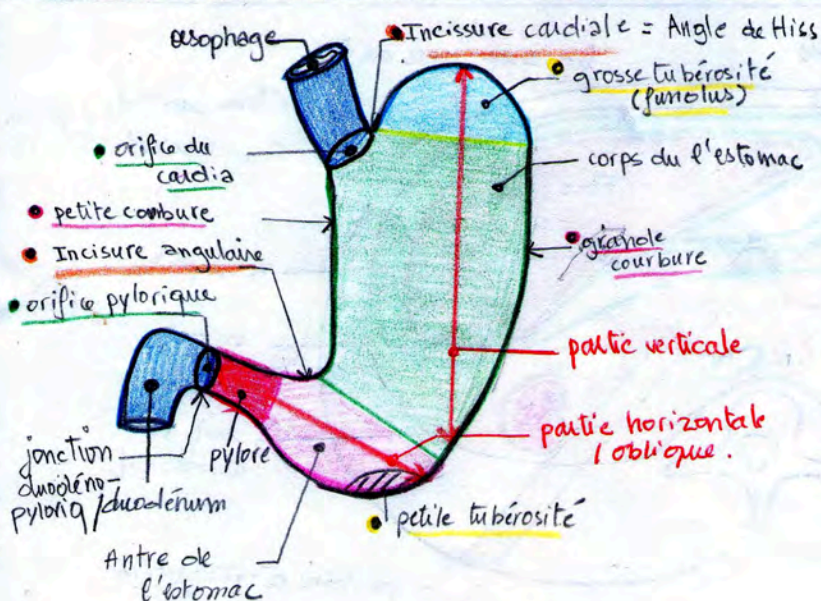 œsophage
Incissure cardiale = Angle de Hiss
grosse tubérosité
(fundus)
orifice du
cardia
corps du l'estomac
petite combure
Incisure angulaire
grande
courbure
orifice pylorique
partie verticale
partie horizontale
/ oblique.
jonction
duodéno-
pyloriq/duodénum
pylore
petite tubérosité
Antre de
l'estomac